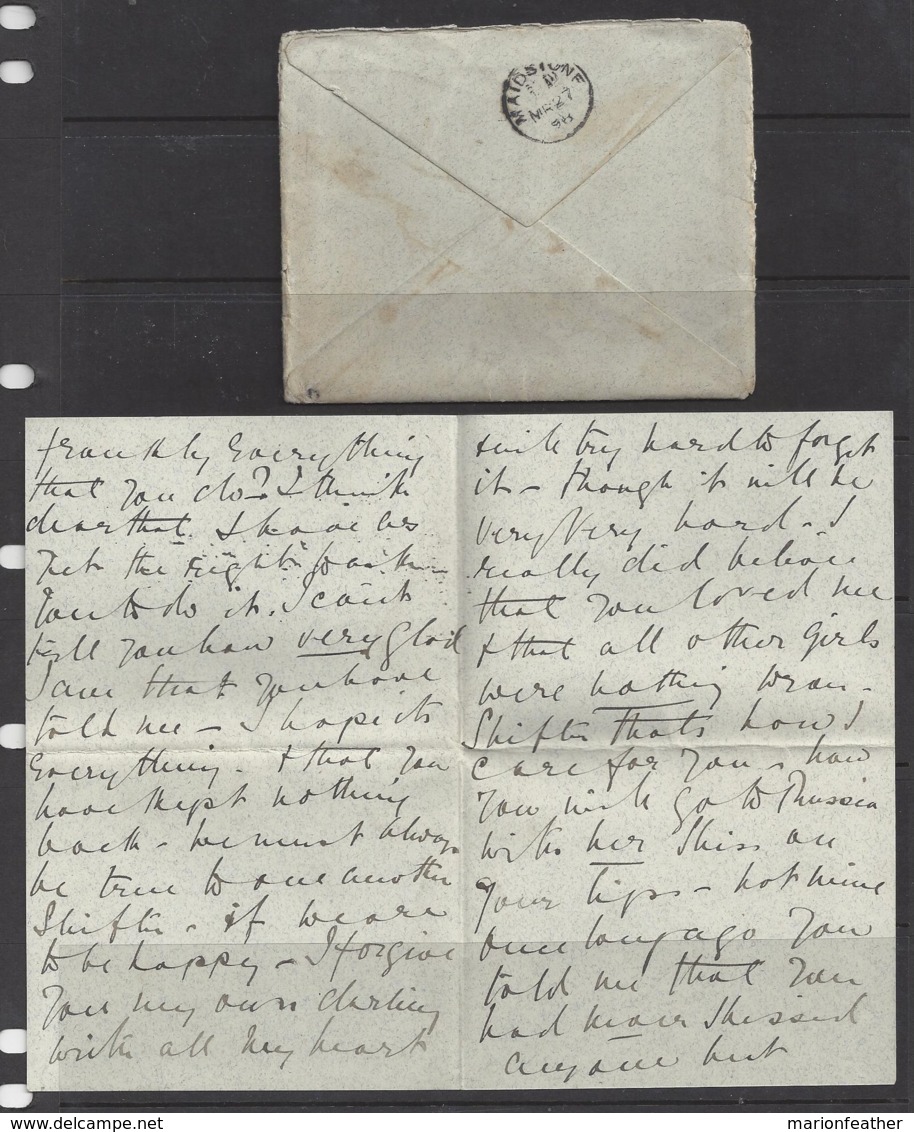 MAIDSTONE
MR 27
98
frankly everything
that you do? I think
dear that I have
not the right to ask
you to do it. I can't
tell you how very glad
I am that you have
told me - I hope its
everything - & that you
have kept nothing
back - we must always
be true to one another
- if we are
to be happy - I forgive
you my own darling
with all my heart
& will try hard to forget
it - though it will be
very very hard - I
really did believe
that you loved me
& that all other girls
were nothing
thats how I
care for you - now
you will go to Russia
with her kiss on
your lips - not mine
once long ago you
told me that you
had never kissed
anyone but
marionfeather